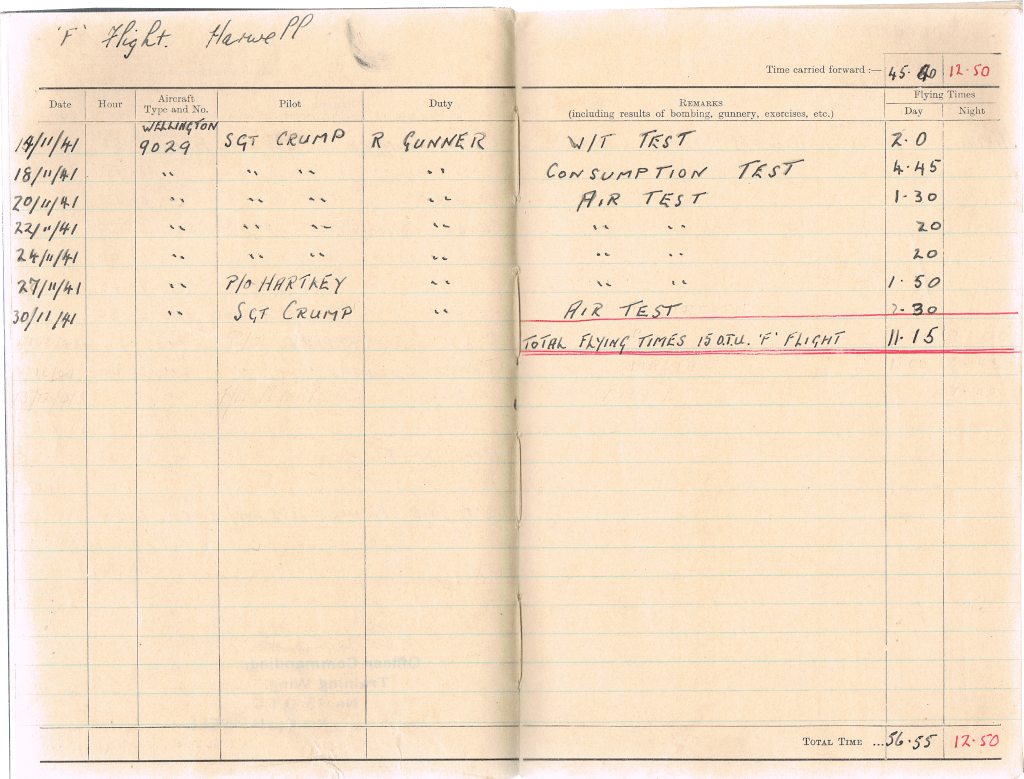 'F' Flight. Harwell
Time carried forward :— 45.40 12.50
Date Hour Aircraft Type and No. Pilot Duty REMARKS (including results of bombing, gunnery, exercises, etc.) Flying Times Day Night
14/11/41 WELLINGTON 9029 SGT CRUMP R GUNNER W/T TEST 2.0
18/11/41 " " " " CONSUMPTION TEST 4.45
20/11/41 " " " " AIR TEST 1.30
22/11/41 " " " " " " 20
24/11/41 " " " " " " 20
27/11/41 " P/O HARTLEY " " " 1.50
30/11/41 " SGT CRUMP " AIR TEST 30
TOTAL FLYING TIMES 15 O.T.U. 'F' FLIGHT 11.15
TOTAL TIME ... 56.55 12.50